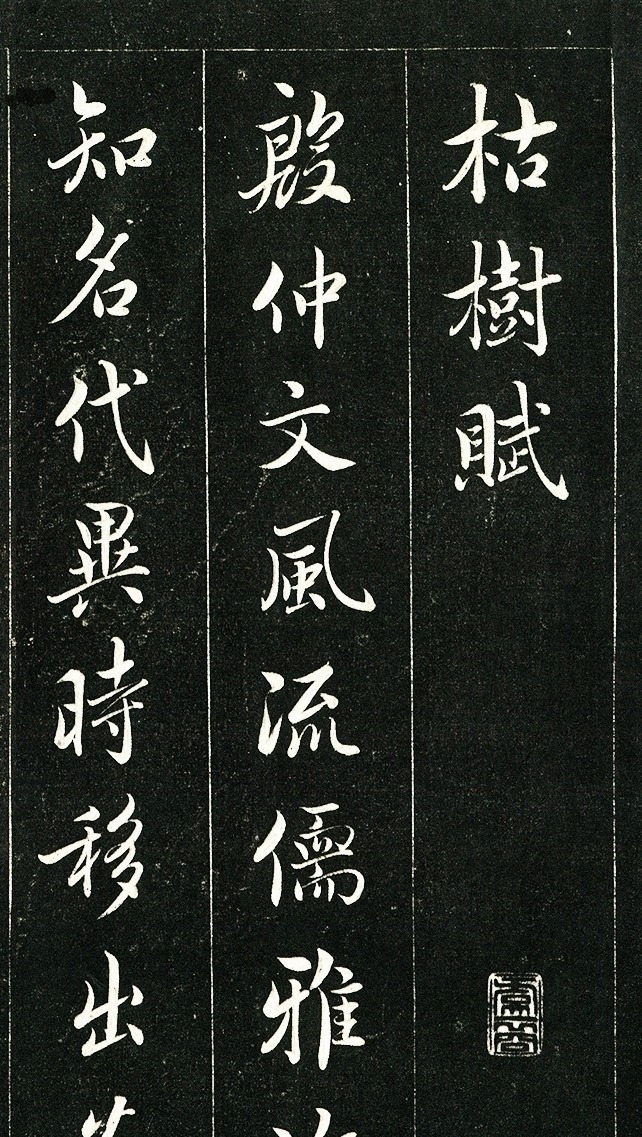 枯樹賦
殷仲文風流儒雅
知名代異時移出